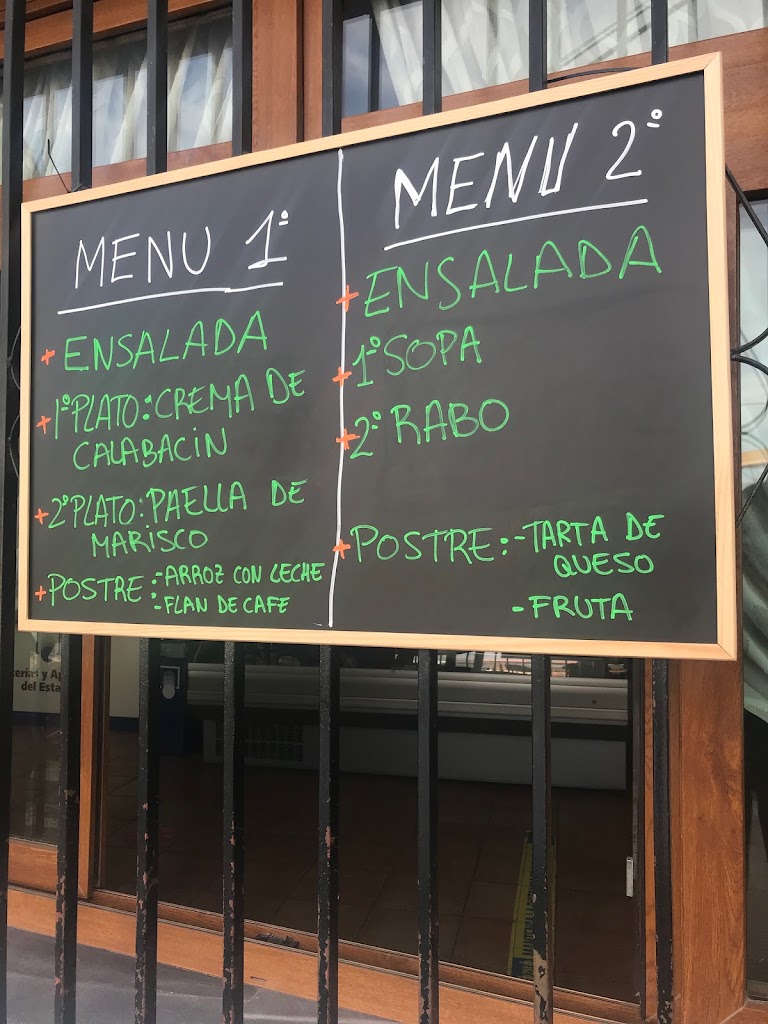 MENU 1º
+ ENSALADA
+ 1º PLATO: CREMA DE
CALABACIN
+ 2º PLATO: PAELLA DE
MARISCO
+ POSTRE: - ARROZ CON LECHE
- FLAN DE CAFE
MENU 2º
+ ENSALADA
+ 1º SOPA
+ 2º RABO
+ POSTRE: - TARTA DE
QUESO
- FRUTA
del Esta